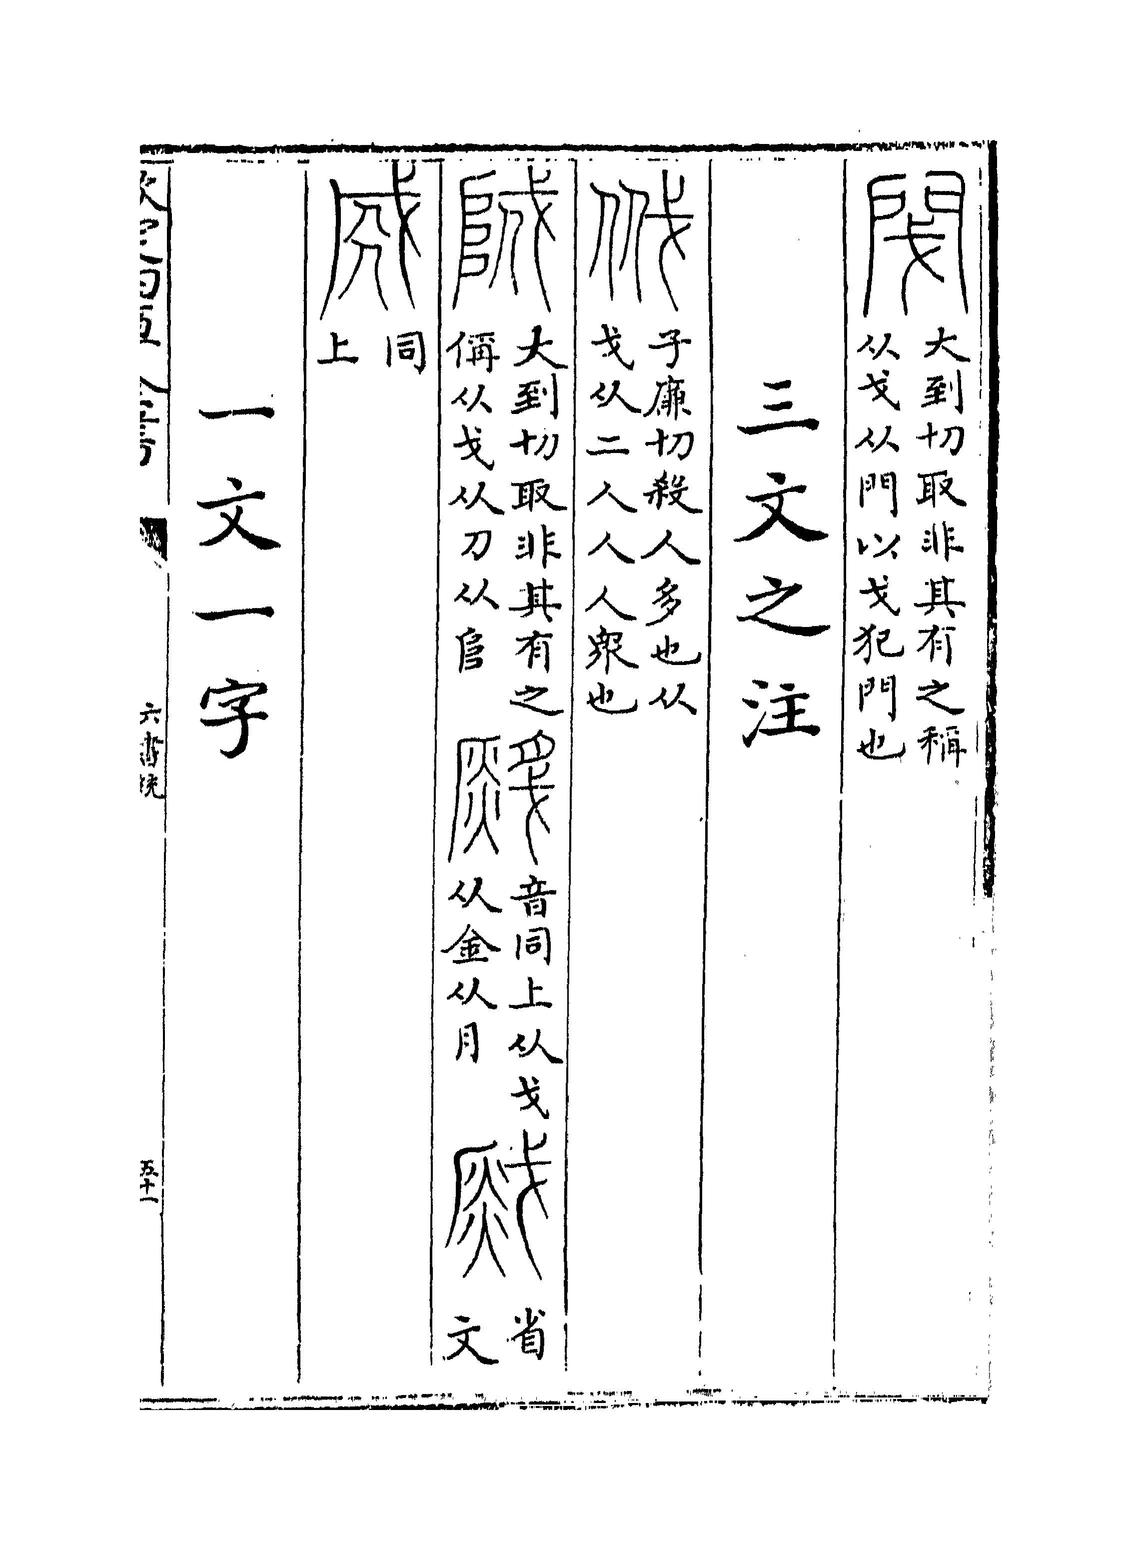 大到切取非其有之稱
从戈从門以戈犯門也
三文之注
子廉切殺人多也从
戈从二人人人衆也
大到切取非其有之
偁从戈从刀从㫖
音同上从戈
从金从月
省
文
同
上
一文一字
欽定四庫全書
六書統
五十一